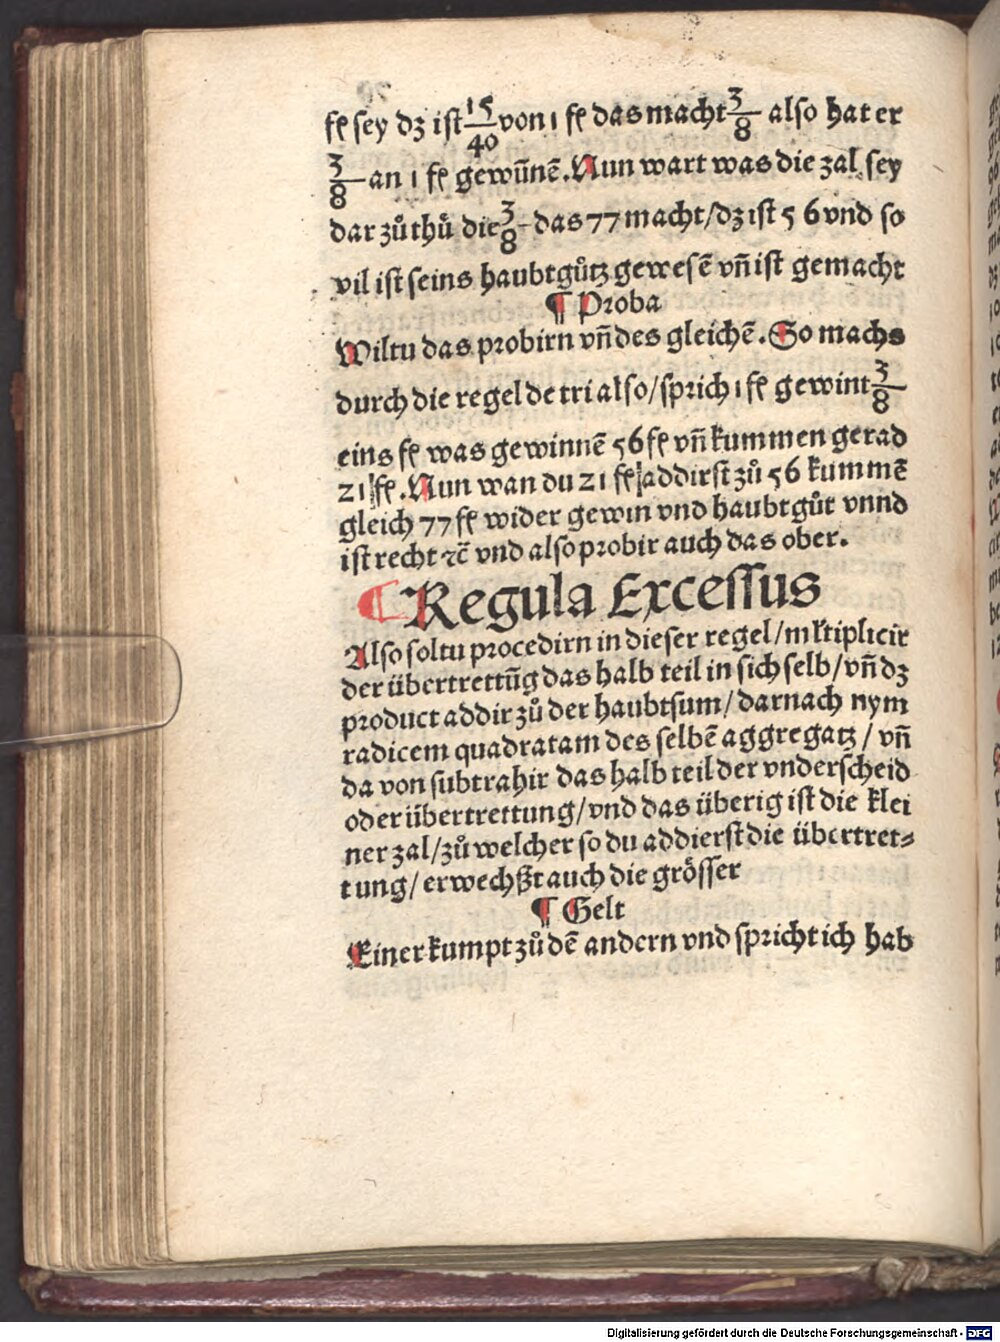 fl̄ sey dz ist 15/40 von 1 fl̄ das macht 3/8 also hat er
3/8 an 1 fl̄ gewūnē. Nun wart was die zal sey
dar zuͦ thuͦ die 3/8 das 77 macht/dz ist 5 6 vnd so
vil ist seins haubtguͦtz gewesē vn̄ ist gemacht
¶ Proba
Wiltu das probirn vn̄ des gleichē. So machs
durch die regel de tri also/sprich 1 fl̄ gewint 3/8
eins fl̄ was gewinnē 56 fl̄ vn̄ kummen gerad
21 fl̄. Nun wan du 21 fl̄ addirst zuͦ 56 kummē
gleich 77 fl̄ wider gewin vnd haubtguͦt vnnd
ist recht ⁊c̄ vnd also probir auch das ober.
¶ Regula Excessus
Also soltu procedirn in dieser regel/mltiplicir
der übertrettūg das halb teil in sich selb/vn̄ dz
product addir zuͦ der haubtsum/darnach nym
radicem quadratam des selbē aggregatz/vn̄
da von subtrahir das halb teil der vnderscheid
oder übertrettung/vnd das überig ist die klei
ner zal/zuͦ welcher so du addierst die übertret⸗
tung/erwechßt auch die grösser
¶ Gelt
Einer kumpt zuͦ dē andern vnd spricht ich hab
Digitalisierung gefördert durch die Deutsche Forschungsgemeinschaft - DFG